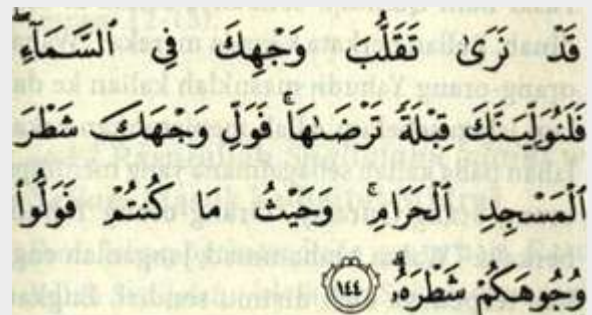 قَدْ نَرَىٰ تَقَلُّبَ وَجْهِكَ فِي السَّمَآءِۖ
فَلَنُوَلِّيَنَّكَ قِبْلَةً تَرْضَىٰهَاۚ فَوَلِّ وَجْهَكَ شَطْرَ
الْمَسْجِدِ الْحَرَامِۚ وَحَيْثُ مَا كُنتُمْ فَوَلُّوا۟
وُجُوهَكُمْ شَطْرَهُۥۗ ١٤٤